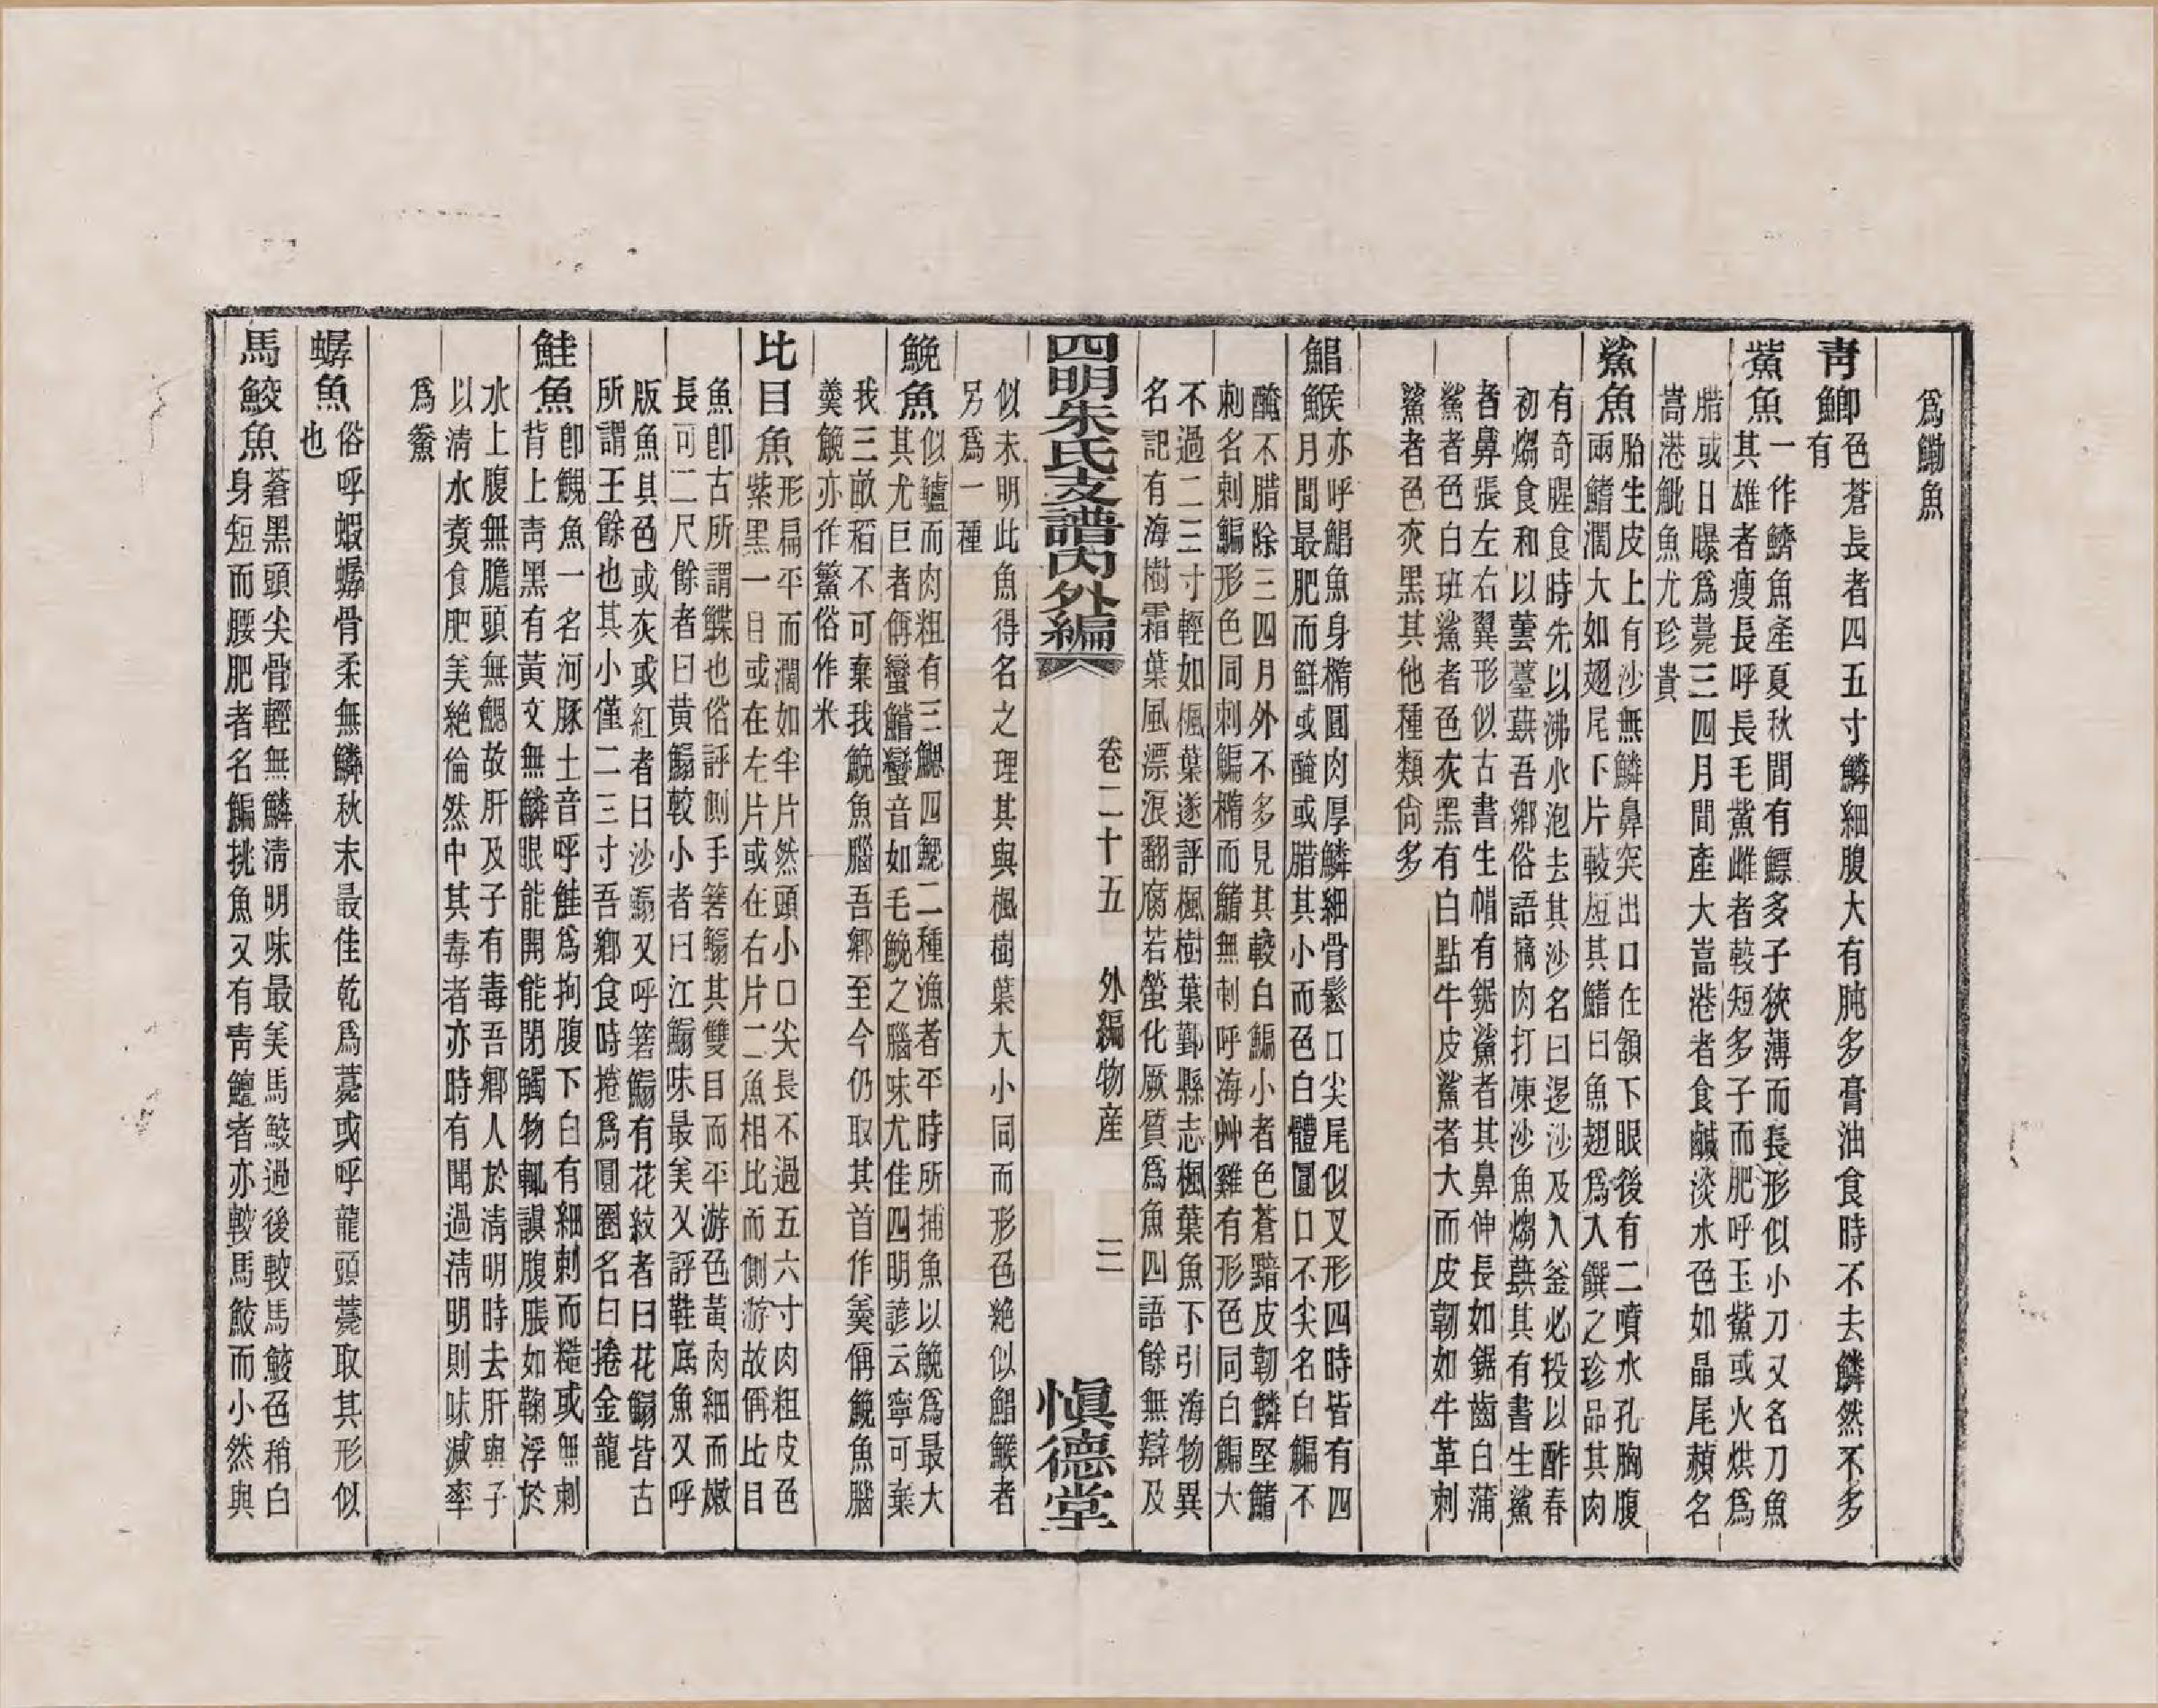 爲鰳魚
青鯽
色蒼長者四五寸鱗細腹大有肫多膏油食時不去鱗然不多
有
鮆魚
一作鱭魚產夏秋間有鰾多子狹薄而長形似小刀又名刀魚
其雄者瘦長呼長毛鮆雌者較短多子而肥呼玉鮆或火烘爲
腊或日曝爲薨三四月間產大嵩港者食鹹淡水色如晶尾赬名
嵩港魮魚尤珍貴
鯊魚
胎生皮上有沙無鱗鼻突出口在頷下眼後有二噴水孔胸腹
兩鰭濶大如翅尾下片較短其鰭曰魚翅爲入饌之珍品其肉
有奇腥食時先以沸水泡去其沙名曰逷沙及入釜必投以酢春
初燩食和以蕓薹蕻吾鄉俗語擒肉打凍沙魚燩蕻其有書生鯊
者鼻張左右翼形似古書生帽有鋸鯊者其鼻伸長如鋸齒白蒲
鯊者色白班鯊者色灰黑有白點牛皮鯊者大而皮韌如牛革刺
鯊者色灰黑其他種類尙多
鯧鯸
亦呼鯧魚身橢圓肉厚鱗細骨鬆口尖尾似叉形四時皆有四
月間最肥而鮮或醃或腊其小而色白體圓口不尖名白鯿不
醃不腊除三四月外不多見其較白鯿小者色蒼黯皮韌鱗堅鰭
刺名刺鯿形色同刺鯿橢而鰭無刺呼海艸雞有形色同白鯿大
不過二三寸輕如楓葉遂評楓樹葉鄞縣志楓葉魚下引海物異
名記有海樹霜葉風漂浪翻腐若螢化厥質爲魚四語餘無辯及
四明朱氏支譜內外編
卷二十五 外編物產 三 愼德堂
似未明此魚得名之理其與楓樹葉大小同而形色絶似鯧鯸者
另爲一種
鮸魚
似鱸而肉粗有三鰓四鰓二種漁者平時所捕魚以鮸爲最大
其尤巨者偁蠻鰽蠻音如毛鮸之腦味尤佳四明諺云寧可棄
我三畝稻不可棄我鮸魚腦吾鄉至今仍取其首作羹偁鮸魚腦
羹鮸亦作鰵俗作米
比目魚
形扁平而濶如半片然頭小口尖長不過五六寸肉粗皮色
紫黑一目或在左片或在右片二魚相比而側游故偁比目
魚卽古所謂鰈也俗評側手箬鰨其雙目而平游色黃肉細而嫩
長可二尺餘者曰黃鰨較小者曰江鰨味最美又評鞋底魚又呼
版魚其色或灰或紅者曰沙鰨又呼箬鰨有花紋者曰花鰨皆古
所謂王餘也其小僅二三寸吾鄉食時捲爲圓圈名曰捲金龍
鮭魚
卽䰽魚一名河豚土音呼鮭爲拘腹下白有細刺而糙或無刺
背上靑黑有黃文無鱗眼能開能閉觸物輒䫖腹脹如鞠浮於
水上腹無膽頭無鰓故肝及子有毒吾鄉人於淸明時去肝與子
以淸水煑食肥美絶倫然中其毒者亦時有聞過淸明則味減率
爲鮝
蟳魚
俗呼蝦蟳骨柔無鱗秋末最佳乾爲薨或呼龍頭薨取其形似
也
馬鮫魚
蒼黑頭尖骨輕無鱗淸明味最美馬鮫過後較馬鮫色稍白
身短而腰肥者名鯿挑魚又有靑鱣者亦較馬鮫而小然與